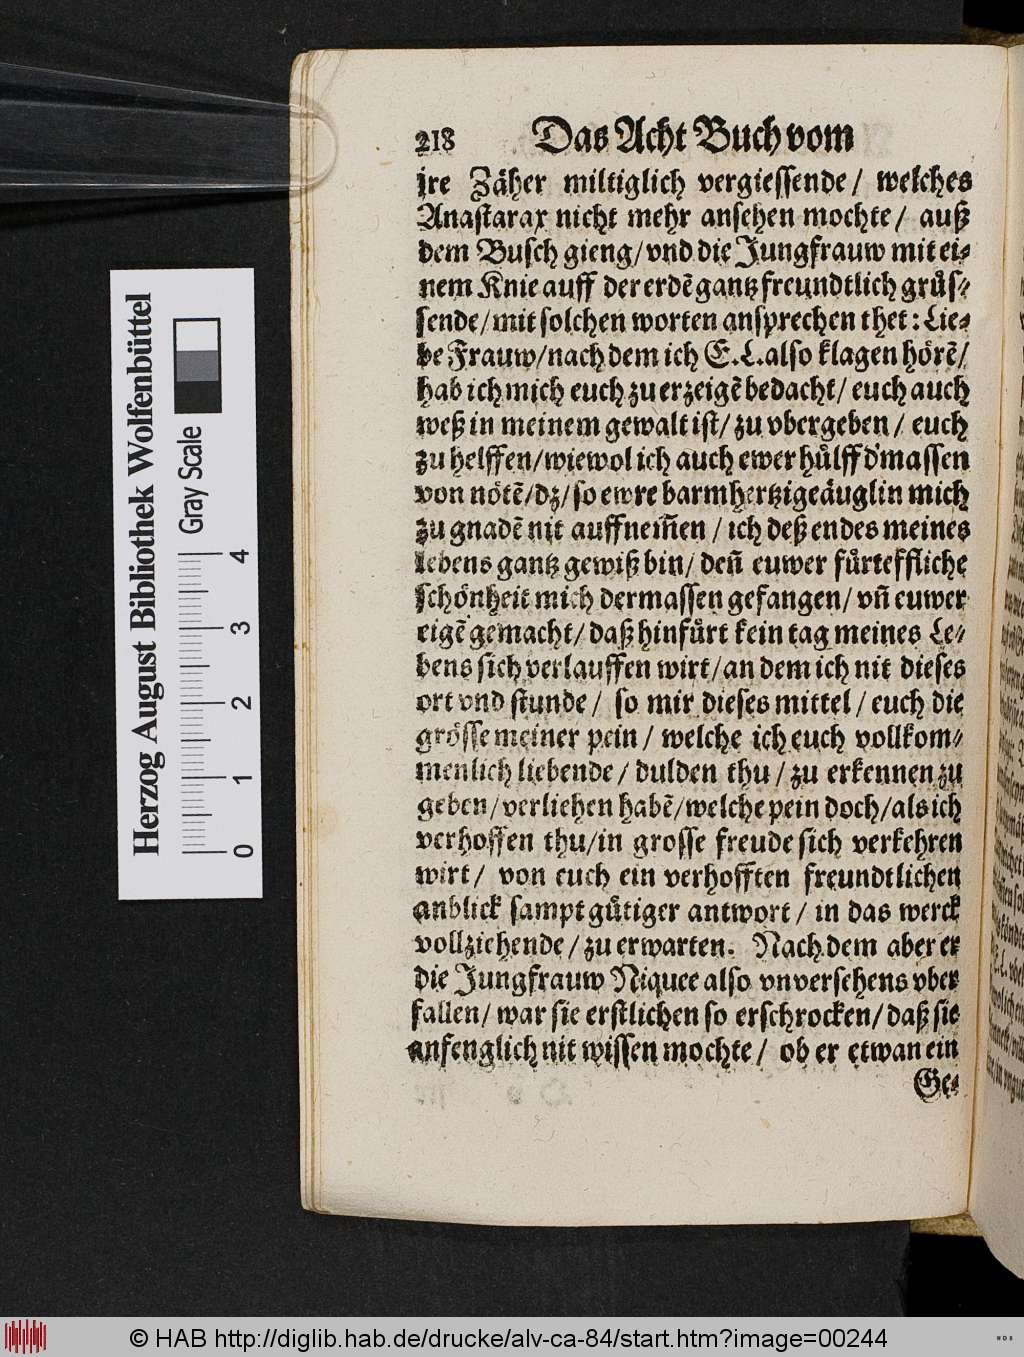 218 Das Acht Buch vom
jre Zäher miltiglich vergiessende / welches
Anastarax nicht mehr ansehen mochte / auß
dem Busch gieng / vnd die Jungfrauw mit ei-
nem Knie auff der erdẽ gantz freundtlich grüs-
sende / mit solchen worten ansprechen thet : Lie-
be Frauw / nach dem ich E. L. also klagen hörẽ /
hab ich mich euch zu erzeigẽ bedacht / euch auch
weß in meinem gewalt ist / zu vbergeben / euch
zu helffen / wiewol ich auch ewer hülff d'massen
von nötẽ / dz / so ewre barmhertzige äuglin mich
zu gnadẽ nit auffnem̃en / ich deß endes meines
lebens gantz gewiß bin / deñ euwer fürteffliche
schönheit mich dermassen gefangen / vñ euwer
eigẽ gemacht / daß hinfürt kein tag meines Le-
bens sich verlauffen wirt / an dem ich nit dieses
ort vnd stunde / so mir dieses mittel / euch die
grösse meiner pein / welche ich euch vollkom-
menlich liebende / dulden thu / zu erkennen zu
geben / verliehen habẽ / welche pein doch / als ich
verhoffen thu / in grosse freude sich verkehren
wirt / von euch ein verhofften freundtlichen
anblick sampt gütiger antwort / in das werck
vollziehende / zu erwarten. Nach dem aber er
die Jungfrauw Niquee also vnversehens vber
fallen / war sie erstlichen so erschrocken / daß sie
anfenglich nit wissen mochte / ob er etwan ein
Ge-
Herzog August Bibliothek Wolfenbüttel
Gray Scale
0 1 2 3 4
© HAB http://diglib.hab.de/drucke/alv-ca-84/start.htm?image=00244